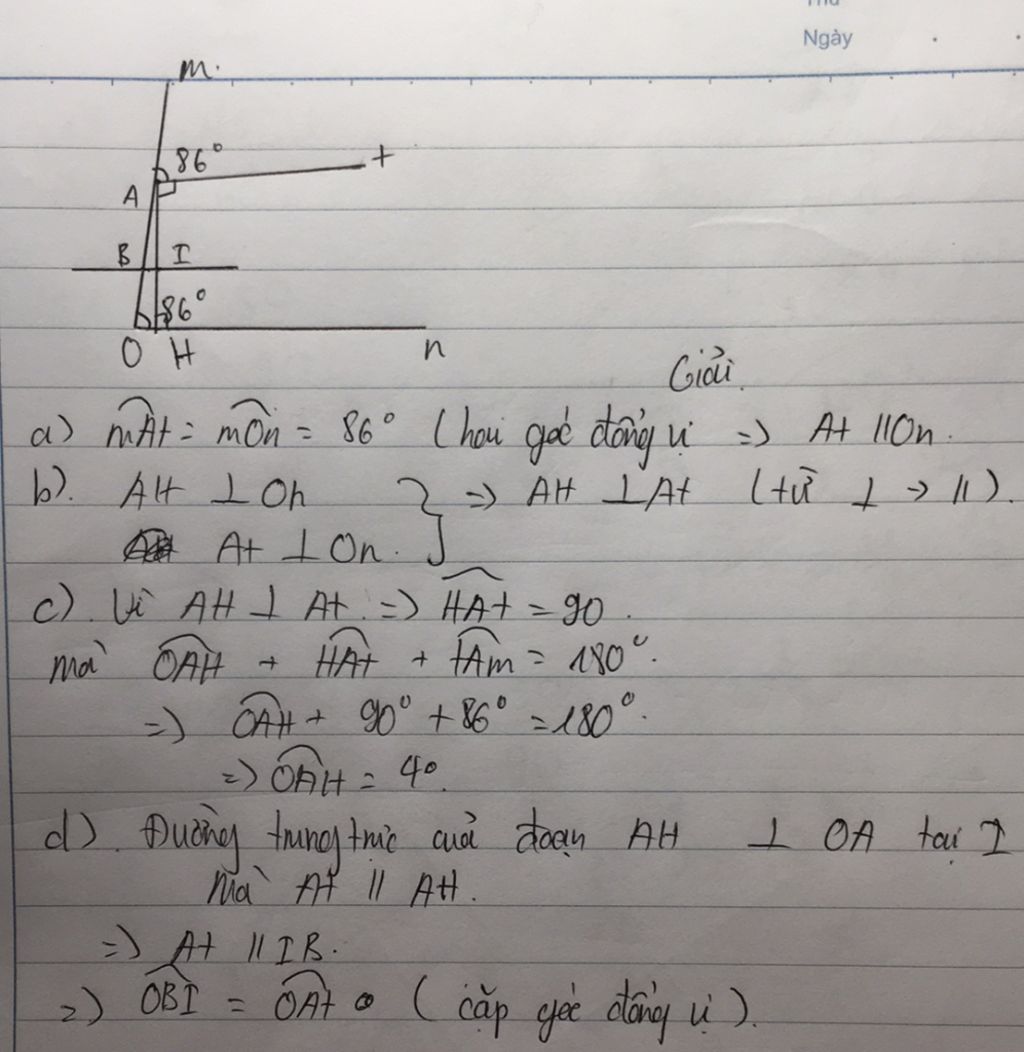 Thứ
Ngày
m.
86°
t
A
B I
86°
O H n
Giải.
a) mÂt = mÔn = 86° (hai góc đồng vị => At // On.
b). AH ⊥ On } => AH ⊥ At (từ ⊥ → //).
At ⊥ On.
c). Vì AH ⊥ At. => HÂt = 90.
mà OÂH + HÂt + tÂm = 180°.
=> OÂH + 90° + 86° = 180°.
=> OÂH = 4°.
d). Đường trung trực của đoạn AH ⊥ OA tại I
Mà At // AH.
=> At // IB.
=> OBI = OAt (cặp góc đồng vị).